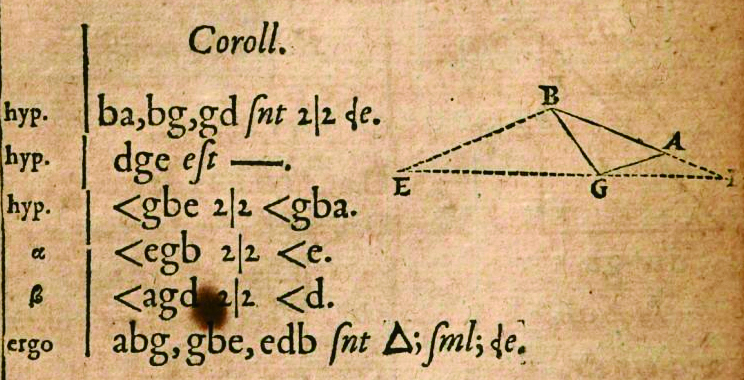 Coroll.
hyp. ba,bg,gd ſnt 2|2 ɖe.
hyp. dge eſt —.
hyp. <gbe 2|2 <gba.
α <egb 2|2 <e.
β <agd 2|2 <d.
ergo abg, gbe, edb ſnt Δ; ſml; ɖe.
B
A
E
G